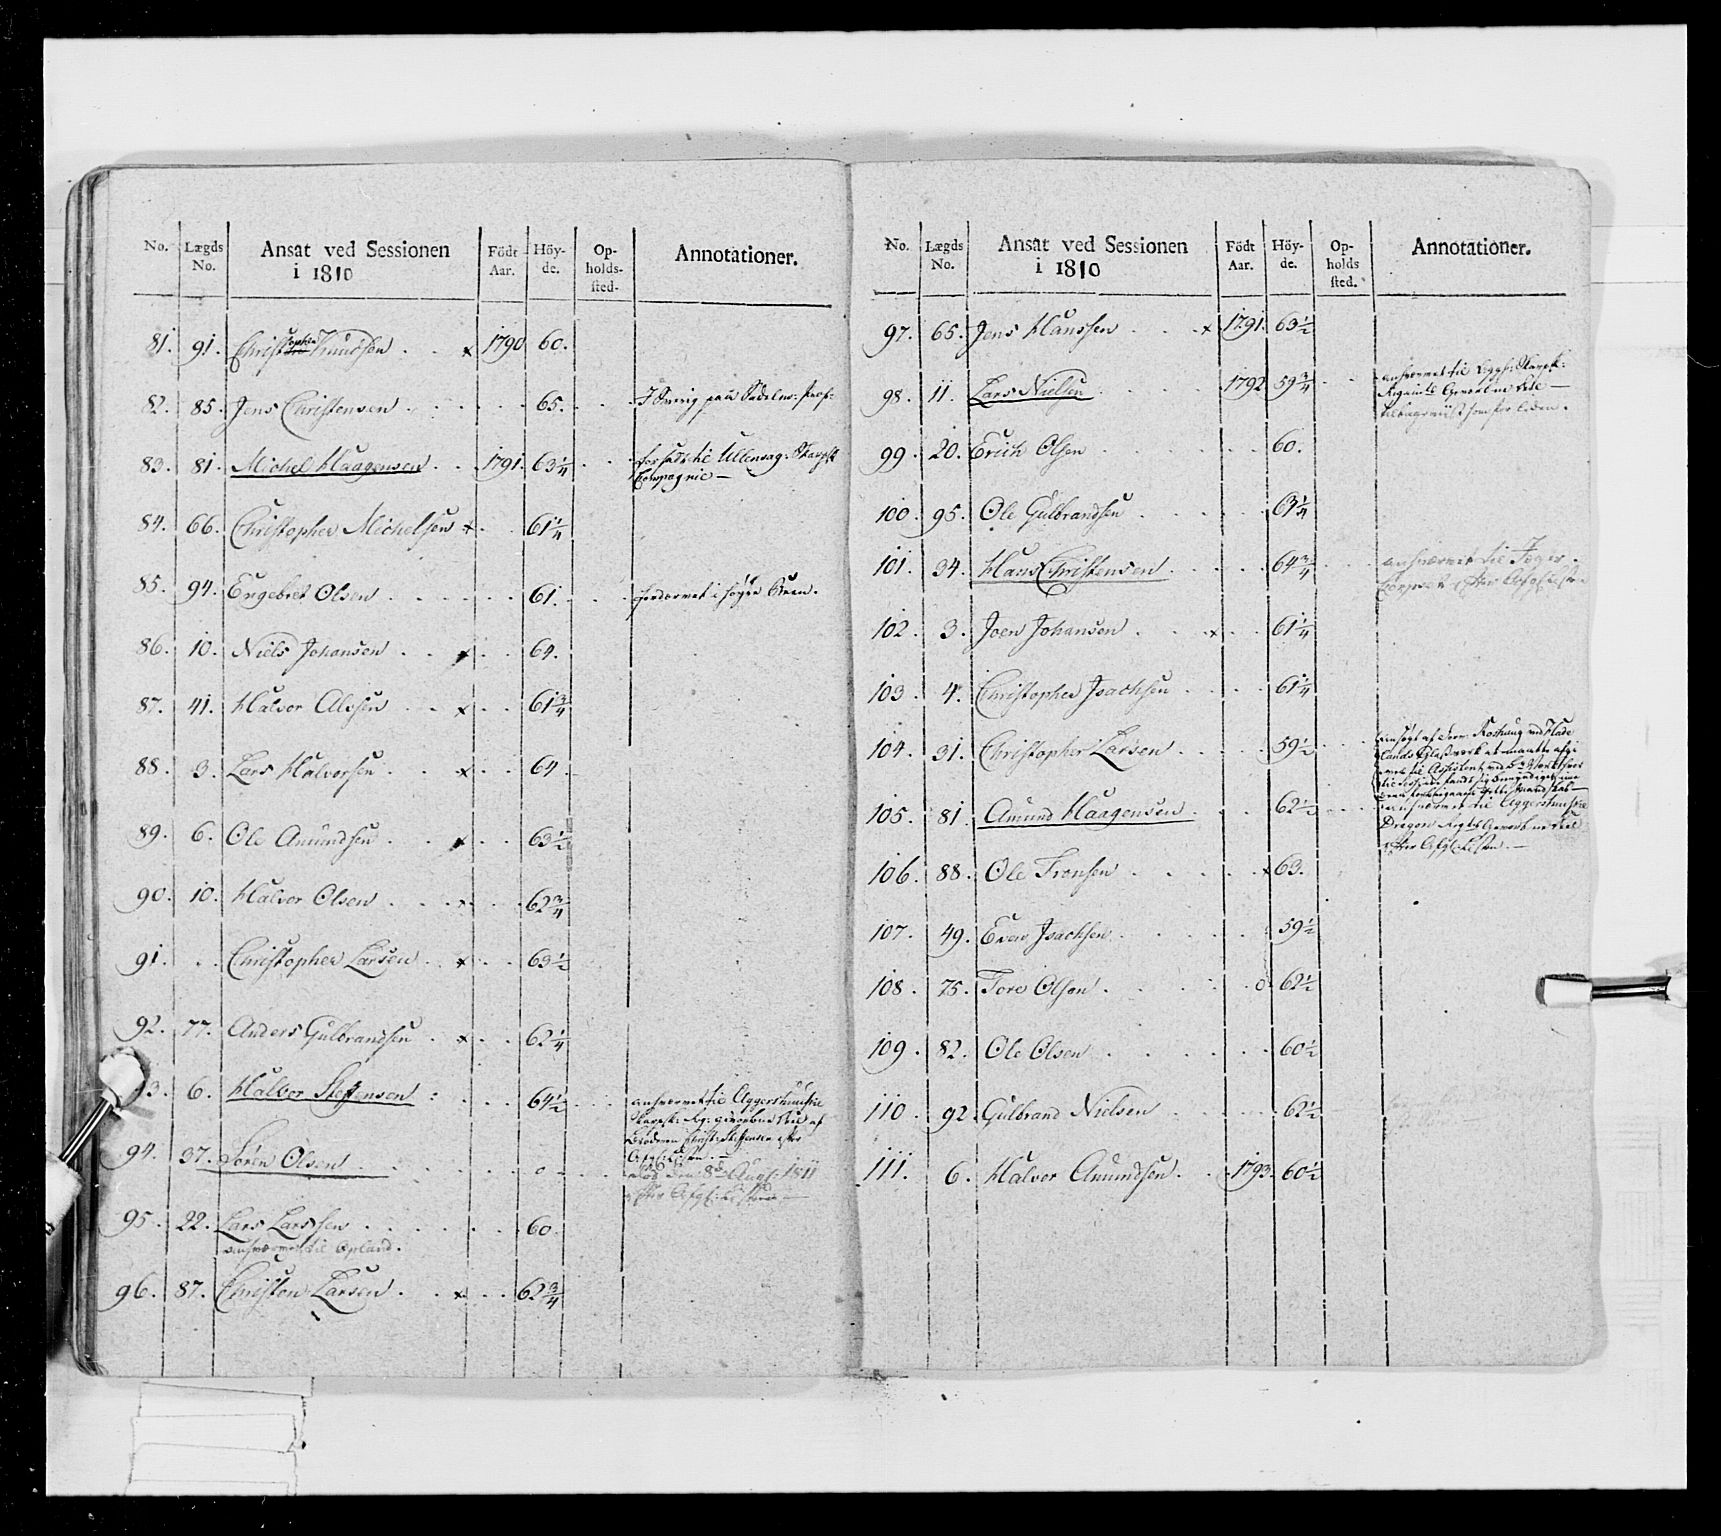 No. Lægds No. Ansat ved Sessionen i 1810 Födt Aar. Höyde. Opholdssted. Annotationer.
81. 91. Christopher Knudsen . . x 1790 60.
82. 85. Jens Christensen . . . . . 65. . .
83. 81. Michel Haagensen . . 1791. 63 1/4 . . forsadt til Ullensag: Skarpsk
Compagnie —
84. 66. Christopher Michelsen x . . 61 1/4
85. 94. Engebret Olsen . . . . . 61. . . i høyre Been.
86. 10. Niels Johansen . . x . . 64.
87. 41. Halvor Olsen . . x . . 61 3/4
88. 3. Lars Halvorsen . . x . . 64.
89. 6. Ole Amundsen . . x . . 63 1/2
90. 10. Halvor Olsen . . . x . . 62 3/4
91. . . Christopher Larsen . . x . . 63 1/2
92. 77. Anders Gulbrandsen . x . . 62 1/4
3. 6. Halvor Steffensen : . . . 64 1/2 . . anhvervet til Aggershuusiske
Skarpsk: Rg: af
Broderen Christ: Steffensen efter
Afg: Listen. —
94. 37. Sören Olsen . . . . . o . . . død den 8de Aug: 1811
efter Afg: Listen —
95. 22. Lars Larssen . . . . . 60.
anhvervet til Opland.
96. 87. Christen Larsen . . x . . 62 3/4
No. Lægds No. Ansat ved Sessionen i 1810 Födt Aar. Höyde. Opholdssted. Annotationer.
97. 65. Jens Hanssen . . . x 1791. 63 1/2
98. 11. Lars Nielsen . . . . 1792 59 3/4 . . anhvervet til Skarpsk:
99. 20. Erich Olsen . . . . . 60.
100. 95. Ole Gulbrandsen . . . . . 63 1/4
101. 34. Hans Christensen . . . . 64 3/4 . . anhvervet til Jæger
Corpset efter Afg: Listen
102. 3. Joen Johansen . . . x . . 61 1/4
103. 4. Christopher Isachsen . . . . 61 1/4
104. 31. Christopher Larsen . . . . 59 1/2 . . .
105. 81. Amund Haagensen . . . 62 1/2 . . anhvervet til Aggershuusiske
Dragon
efter Afg: Listen. —
106. 88. Ole Fransen . . . . . x 63.
107. 49. Even Isachsen . . . . . 59 1/2
108. 75. Tore Olsen . . . . o 62 1/2
109. 82. Ole Olsen . . . . . 60 1/2
110. 92. Gulbrand Nielsen . . . . 62 1/2
111. 6. Halvor Amundsen . . 1793. 60 1/2